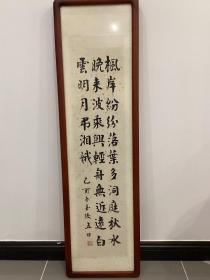 楓岸紛紛落葉多洞庭秋水
晚來波乘興輕舟無近遠白
雲明月弔湘娥
乙酉